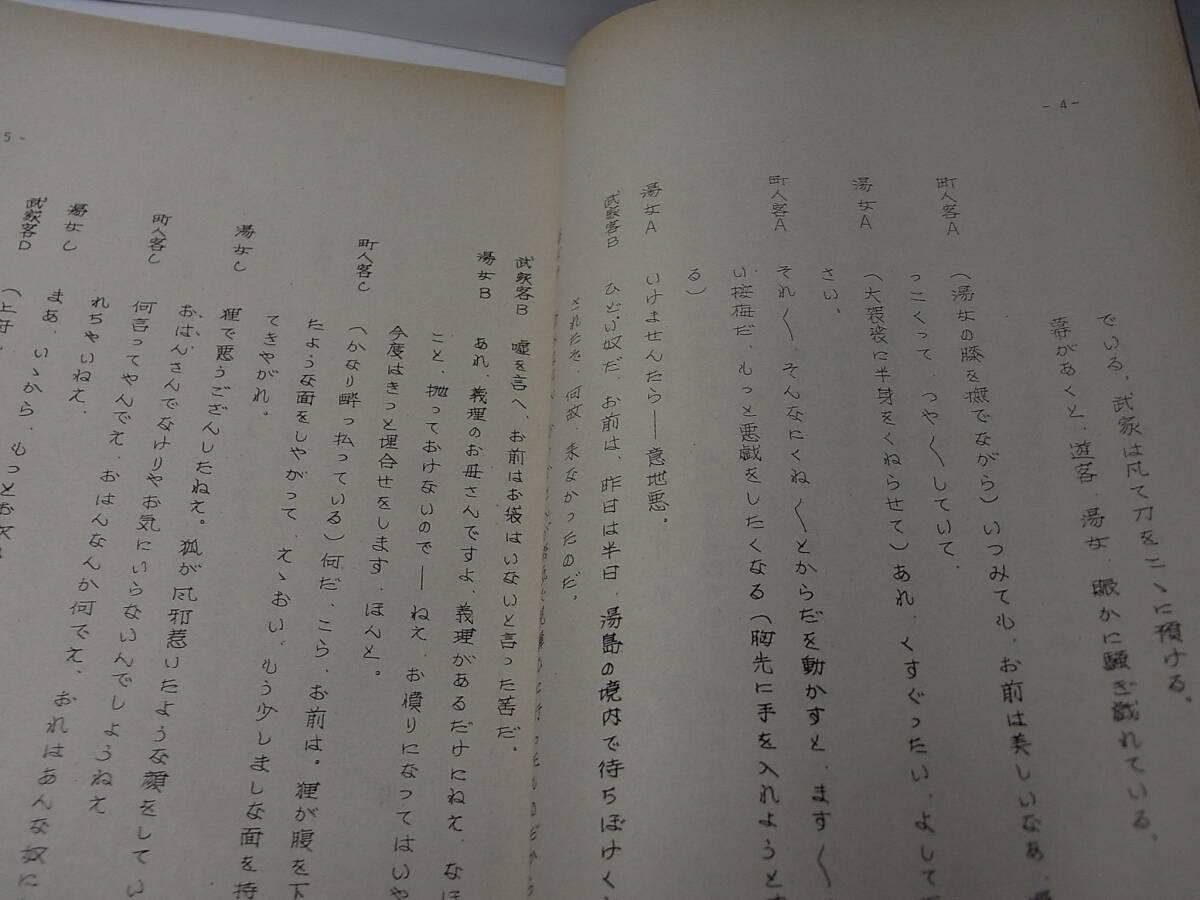 - 4 -
でいる。武家は凡て刀をこゝに預ける。
幕があくと、遊客、湯女、賑かに騒ぎ戯れている。
町人客A　（湯女の膝を撫でながら）いつみても、お前は美しいなあ、
っこくって、つや〱していて、
湯女A　（大袈裟に半身をくねらせて）あれ、くすぐったい、よして下
さい。
町人客A　それ〱、そんなにくね〱とからだを動かすと、ます〱
い接梅だ、もっと悪戯をしたくなる（胸先に手を入れようとす
る）
湯女A　いけませんたら――意地悪。
武家客B　ひどい奴だ、お前は、昨日は半日、湯島の境内で待ちぼけく
されたを、何故、来なかったのだ。
5 -
武家客B　嘘を言へ、お前はお袋はいないと言った筈だ。
湯女B　あれ、義理のお母さんですよ、義理があるだけにねえ、なほ
こと、抛っておけないので――ねえ、お憤りになってはいや
今度はきっと埋合せをします、ほんと。
町人客C　（かなり酔っ払っている）何だ、こら、お前は。狸が腹を下
たような面をしやがって、えゝおい、もう少しましな面を持
てきやがれ。
湯女C　狸で悪うござんしたねえ。狐が風邪惹いたような顔をしてい
おはんさんでなけりやお気にいらないんでしようねえ
町人客C　何言ってやんでえ、おはんなんか何でえ、おれはあんな奴に
れちゃいねえ、
湯女C　まあ、いゝから、もっとお
武家客D　（上